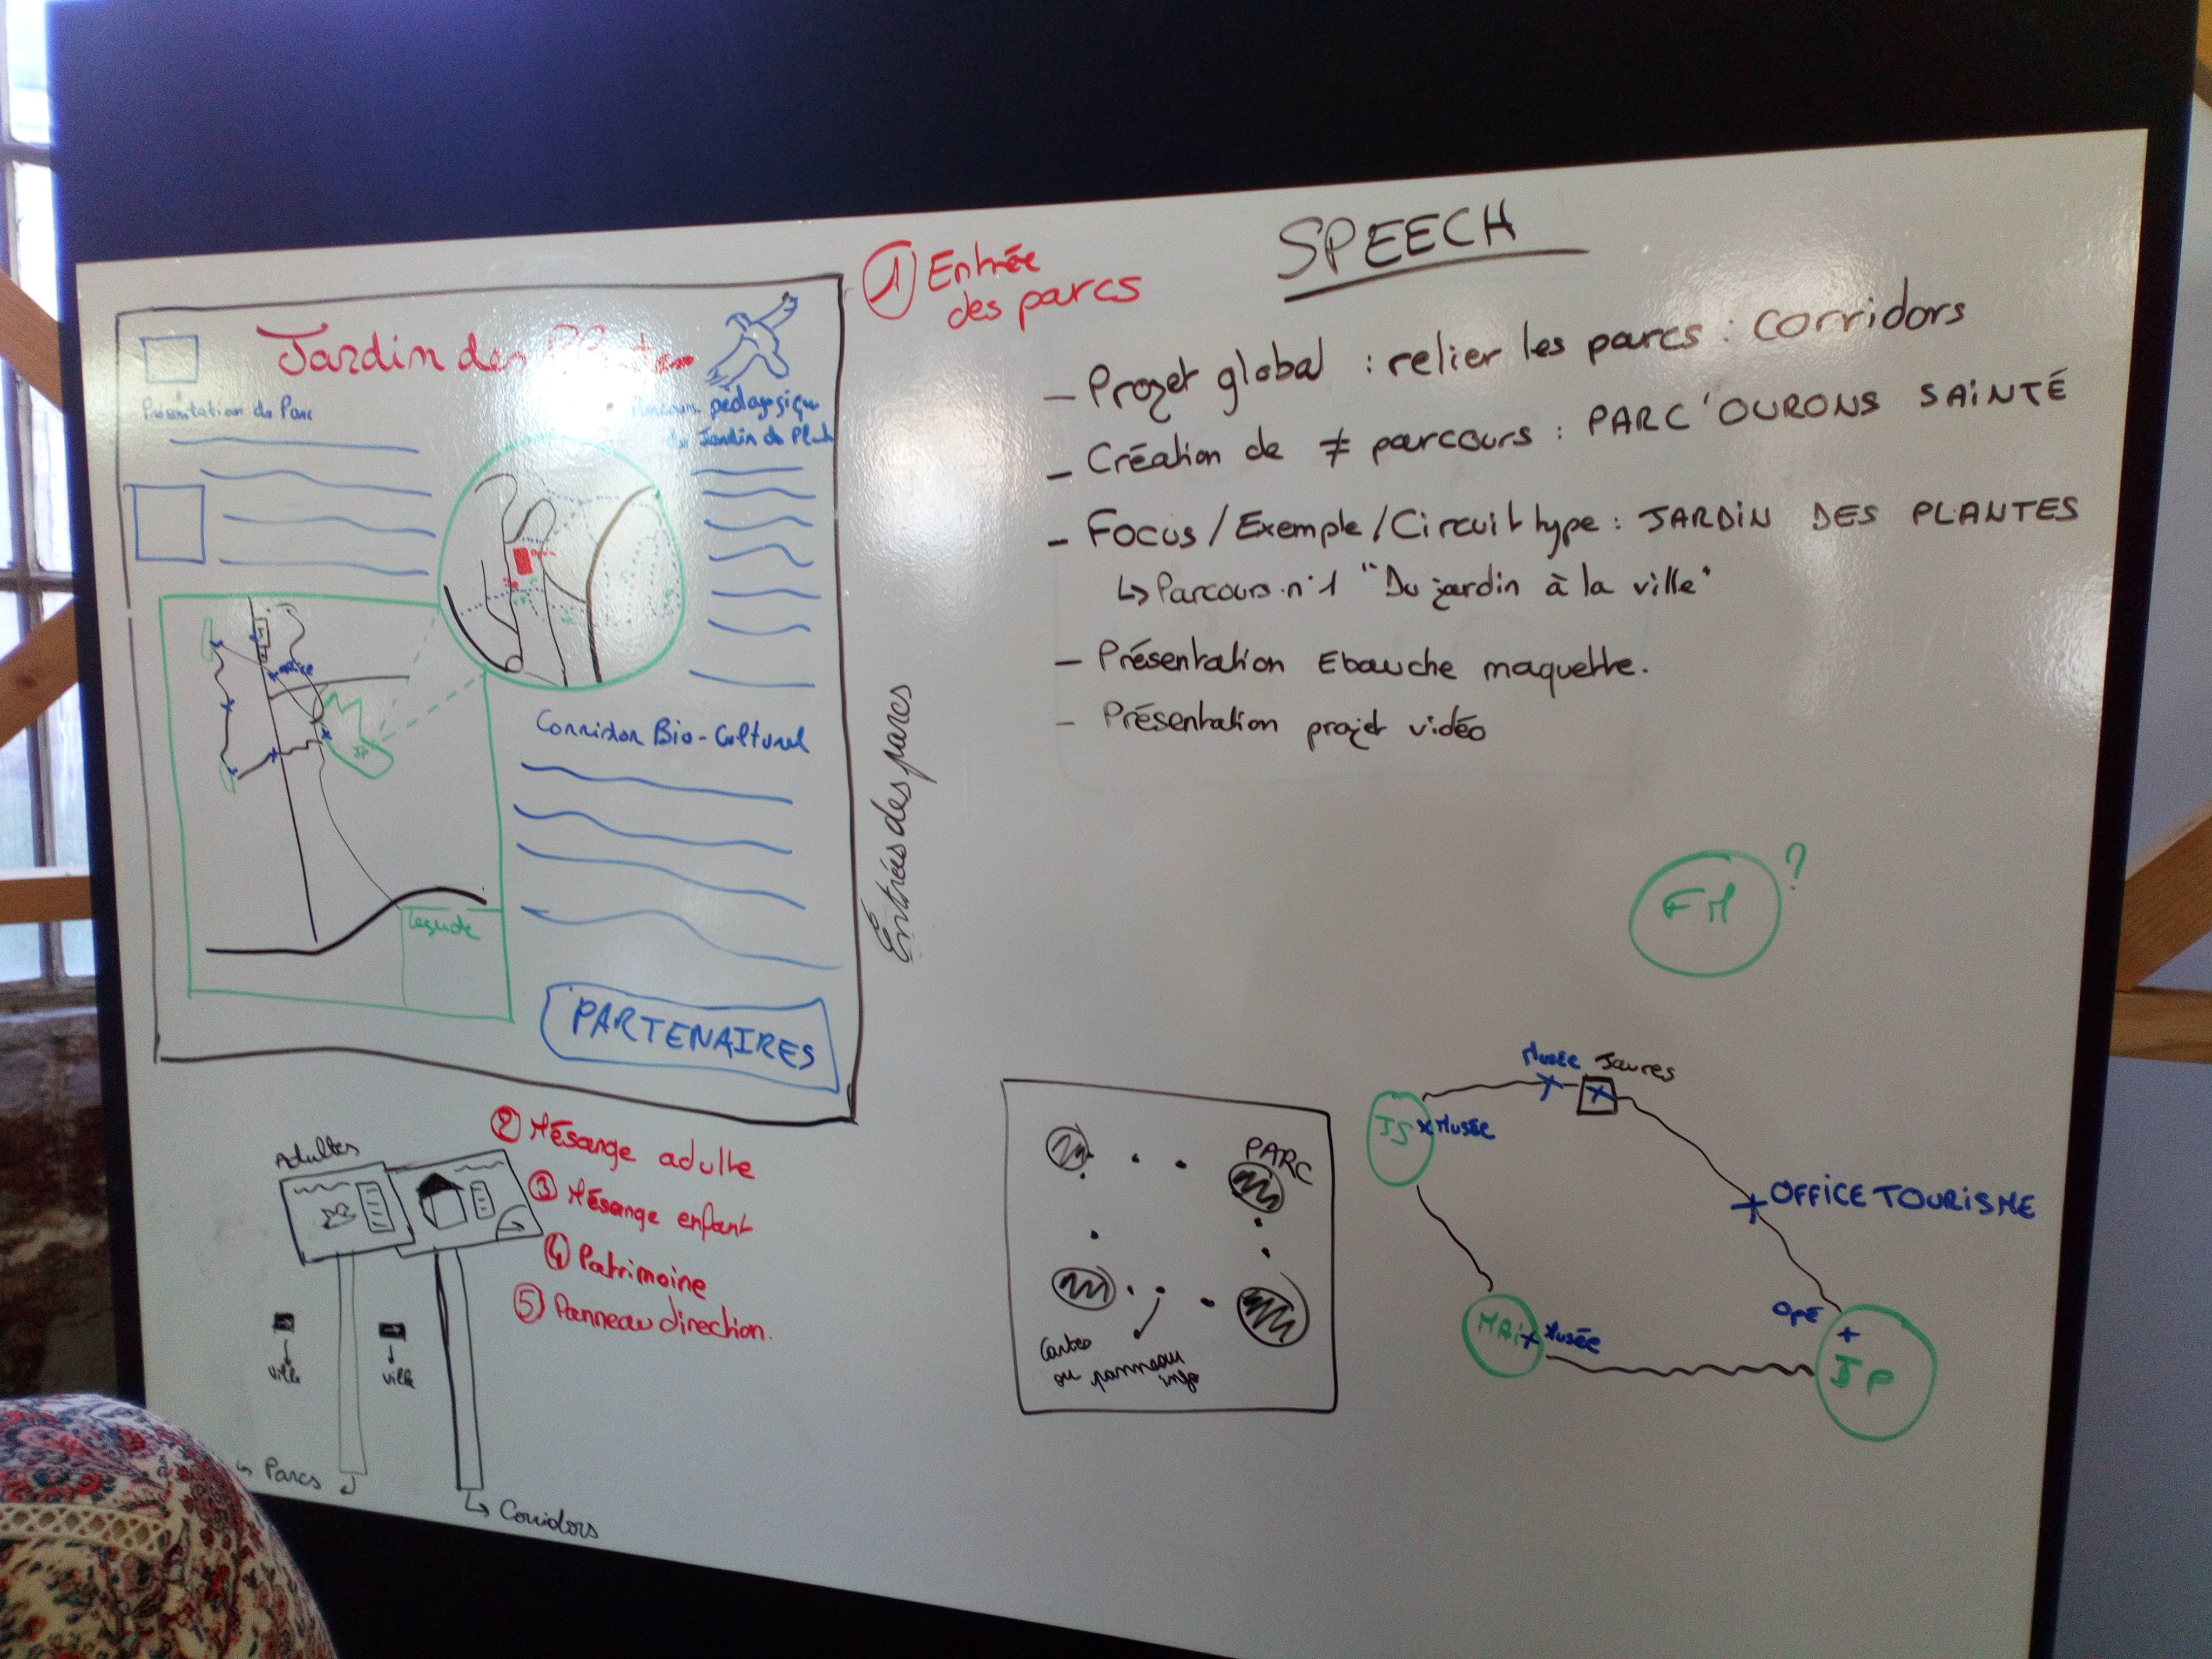 Jardin des
Présentation du Parc
pédagogique
du Jardin des
office
JP
Légende
Corridor Bio-Culturel
PARTENAIRES
Entrées des parcs
① Entrée
des parcs
Adultes
ville
ville
Parcs
↳ Corridors
② Mésange adulte
③ Mésange enfant
④ Patrimoine
⑤ Panneau direction.
SPEECH
– Projet global : relier les parcs : corridors
– Création de ≠ parcours : PARC'OURONS SAiNTÉ
– Focus / Exemple / Circuit type : JARDiN DES PLANTES
↳ Parcours n°1 "Du jardin à la ville"
– Présentation Ebauche maquette.
– Présentation projet vidéo
FM ?
PARC
Cartes
ou panneau
info
Musée Jaures
JS x Musée
OFFICE TOURISME
MAi Musée
OPE
JP